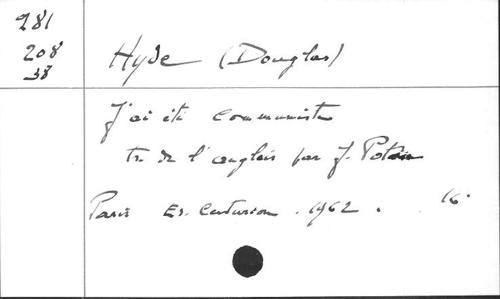 281
208
38
Hyde (Douglas)
J'ai été communiste
tr de l'anglais par J. Potain
Paris Ed. Centurion . 1962 . 16°